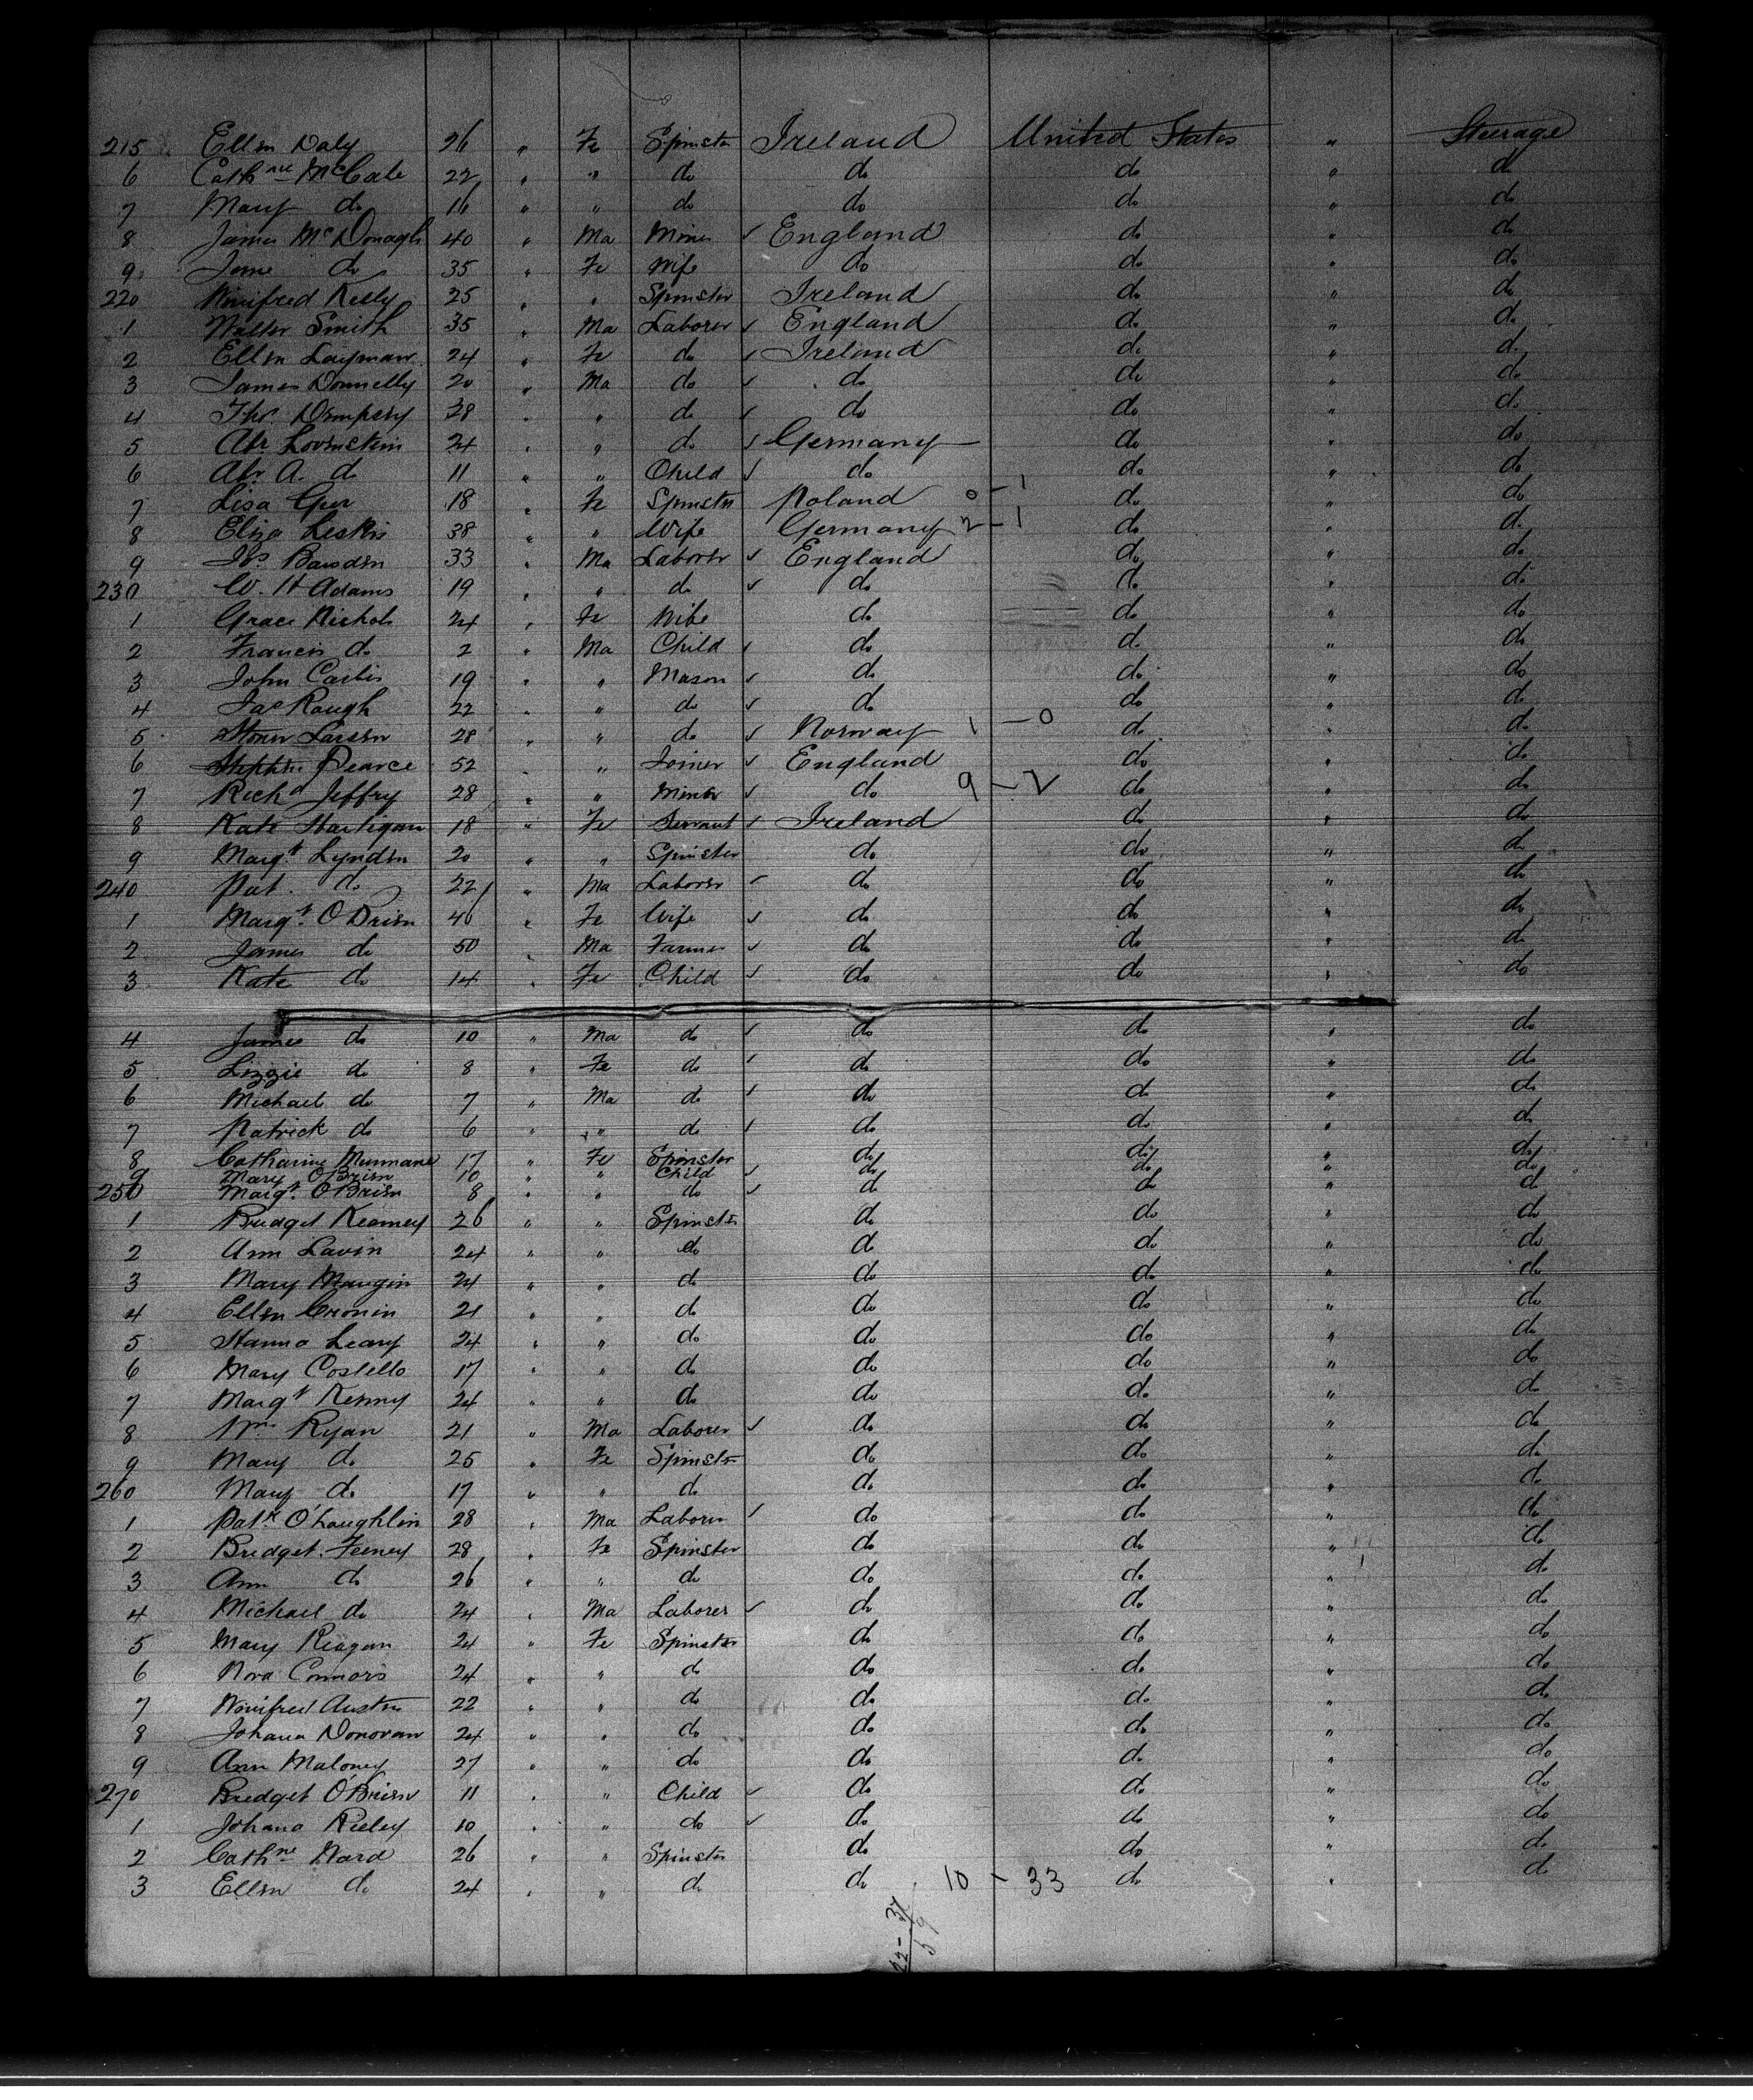 215 Ellen Daly 26 " Fe Spinster Ireland United States " Steerage
6 Cathne McCabe 22 " " do do do " do
7 Mary do 16 " " do do do " do
8 James McDonagh 40 " Ma Miner ✓ England do " do
9 Jane do 35 " Fe Wife do do " do
220 Winifred Kelly 25 " " Spinster Ireland do " do
1 Walter Smith 35 " Ma Laborer ✓ England do " do
2 Ellen Layman 24 " Fe do ✓ Ireland do " do
3 James Donnelly 20 " Ma do ✓ do do " do
4 Thos. Dempsey 28 " " do ✓ do do " do
5 Abr Lovenstein 24 " " do ✓ Germany do " do
6 Abr. A. do 11 " " Child ✓ do do " do
7 Lisa 18 " Fe Spinster Poland 0 - 1 do " do
8 Eliza Leskis 38 " " Wife Germany 2 - 1 do " do
9 Jos Bawden 33 " Ma Laborer ✓ England do " do
230 W. H Adams 19 " " do ✓ do do " do
1 Grace Nichols 24 " Fe Wife do do " do
2 Francis do 2 " Ma Child ✓ do do " do
3 John 19 " " Mason ✓ do do " do
4 Jas Raugh 22 " " do ✓ do do " do
5 Larsen 28 " " do ✓ Norway 1 - 0 do " do
6 Stephen Pearce 52 " " Joiner ✓ England do " do
7 Richd Jeffry 28 " " Miner ✓ do 9 - 2 do " do
8 Kate Hartigan 18 " Fe Servant ✓ Ireland do " do
9 Margt Lynden 20 " " Spinster do do " do
240 Pat. do 22 " Ma Laborer ✓ do do " do
1 Margt. O'Brien 46 " Fe Wife ✓ do do " do
2 James do 50 " Ma Farmer ✓ do do " do
3 Kate do 14 " Fe Child ✓ do do " do
4 James do 10 " Ma do ✓ do do " do
5 Lizzie do 8 " Fe do ✓ do do " do
6 Michael do 7 " Ma do ✓ do do " do
7 Patrick do 6 " " do ✓ do do " do
8 Catharine Murnane 17 " Fe Spinster do do " do
9 Mary O'Brien 10 " " Child ✓ do do " do
250 Margt. O'Brien 8 " " do ✓ do do " do
1 Bridget Kearney 26 " " Spinster do do " do
2 Ann Lavin 24 " " do do do " do
3 Mary Mangin 24 " " do do do " do
4 Ellen Cronin 21 " " do do do " do
5 Hanna Leary 24 " " do do do " do
6 Mary Costello 17 " " do do do " do
7 Margt Kenny 24 " " do do do " do
8 Wm. Ryan 21 " Ma Laborer ✓ do do " do
9 Mary do 25 " Fe Spinster do do " do
260 Mary do 17 " " do do do " do
1 Patk O'Loughlin 28 " Ma Laborer ✓ do do " do
2 Bridget Feeney 28 " Fe Spinster do do " do
3 Ann do 26 " " do do do " do
4 Michael do 24 " Ma Laborer ✓ do do " do
5 Mary Reagan 24 " Fe Spinster do do " do
6 Nora Connors 24 " " do do do " do
7 Winifred Austin 22 " " do do do " do
8 Johana Donovan 24 " " do do do " do
9 Ann Maloney 27 " " do do do " do
270 Bridget O'Brien 11 " " Child ✓ do do " do
1 Johana Rieley 10 " " do ✓ do do " do
2 Cathne Ward 26 " " Spinster do do " do
3 Ellen do 24 " " do do 10 - 33 do " do
22 - 37
59